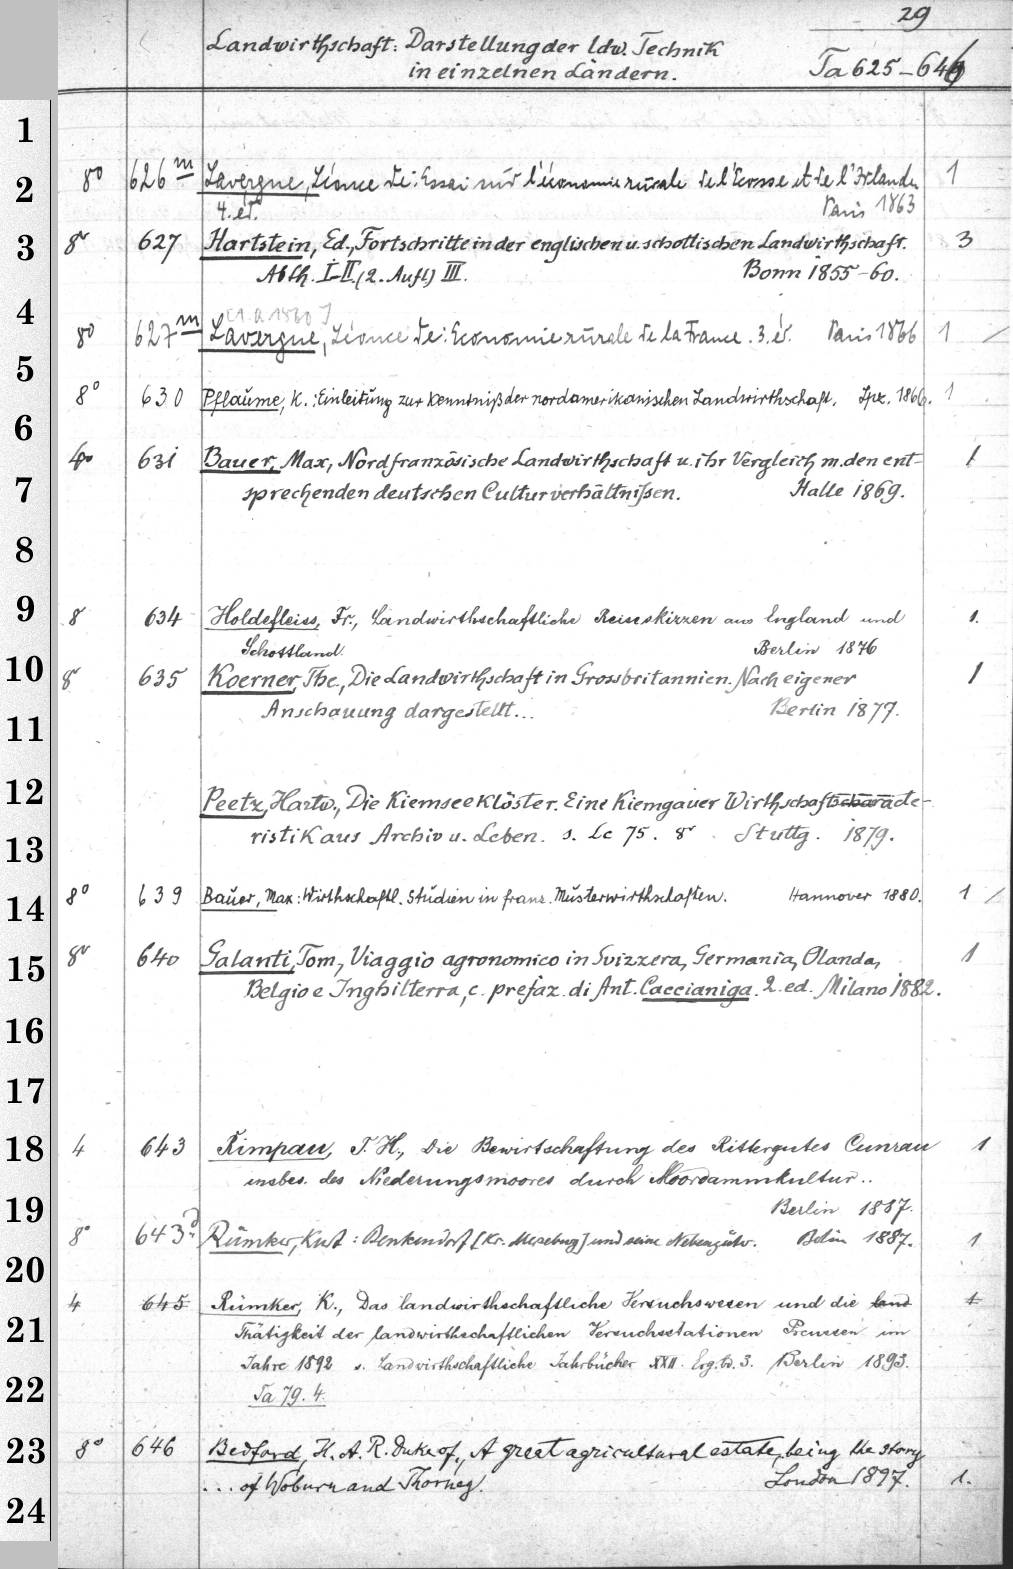 29
Landwirthschaft: Darstellung der ldw. Technik
in einzelnen Ländern.
Ta 625-646
1
2
3
4
5
6
7
8
9
10
11
12
13
14
15
16
17
18
19
20
21
22
23
24
8° 626 m Lavergne, Léonce de: Essai sur l'économie rurale de l'Ecosse et de l'Irlande 1
4. ed. Paris 1863
8° 627 Hartstein, Ed., Fortschritte in der englischen u. schottischen Landwirthschaft. 3
Abth. I-II. (2. Aufl) III. Bonn 1855-60.
[1. A. 1860]
8° 627 m Lavergne, Léonce de: Economie rurale de la France. 3. éd. Paris 1866 1
8° 630 Pflaume, K.: Einleitung zur Kenntniß der nordamerikanischen Landwirthschaft. Lpz. 1866. 1
4° 631 Bauer, Max, Nordfranzösische Landwirthschaft u. ihr Vergleich m. den ent- 1
sprechenden deutschen Culturverhältnissen. Halle 1869.
8° 634 Holdefleiss, Fr., Landwirthschaftliche Reiseskizzen aus England und 1.
Schottland. Berlin 1876
8° 635 Koerner, The., Die Landwirthschaft in Grossbritannien. Nach eigener 1
Anschauung dargestellt... Berlin 1877.
Peetz, Hartw., Die Kiemseeklöster. Eine Kiemgauer Wirthschaftscharacte-
ristik aus Archiv u. Leben. s. Lc 75. 8° Stuttg. 1879.
8° 639 Bauer, Max: Wirthschaftl. Studien in franz. Musterwirthschaften. Hannover 1880. 1
8° 640 Galanti, Tom., Viaggio agronomico in Svizzera, Germania, Olanda, 1
Belgio e Inghilterra, c. prefaz. di Ant. Caccianiga. 2. ed. Milano 1882.
4 643 Rimpau, T. H., Die Bewirtschaftung des Rittergutes Cunrau 1
insbes. des Niederungsmoores durch Moordammkultur..
Berlin 1887.
8° 643 d Rümker, Kurt: Benkendorf [Kr. Merseburg] und seine Nebengüter. Berlin 1887. 1
4 645 Rümker, K., Das landwirthschaftliche Versuchswesen und die land 1
Thätigkeit der landwirthschaftlichen Versuchsstationen Preussen im
Jahre 1892 s. Landwirthschaftliche Jahrbücher XXII. Erg. bd. 3. Berlin 1893.
Ta 79. 4.
8° 646 Bedford, H. A. R. Duke of, A great agricultural estate, being the story
... of Woburn and Thorney. London 1897. 1.